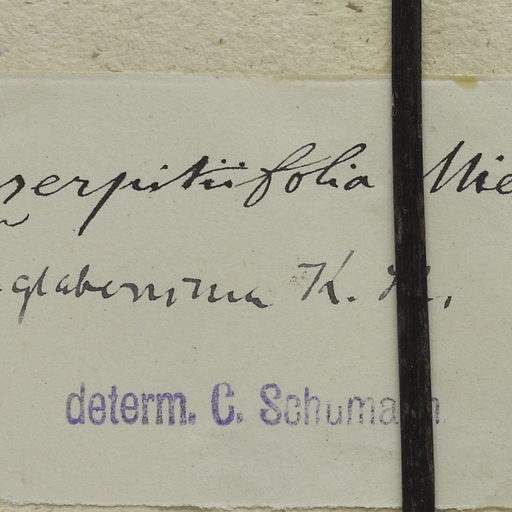 serpitiifolia Mie
glaberrima K.
determ. C. Schumann